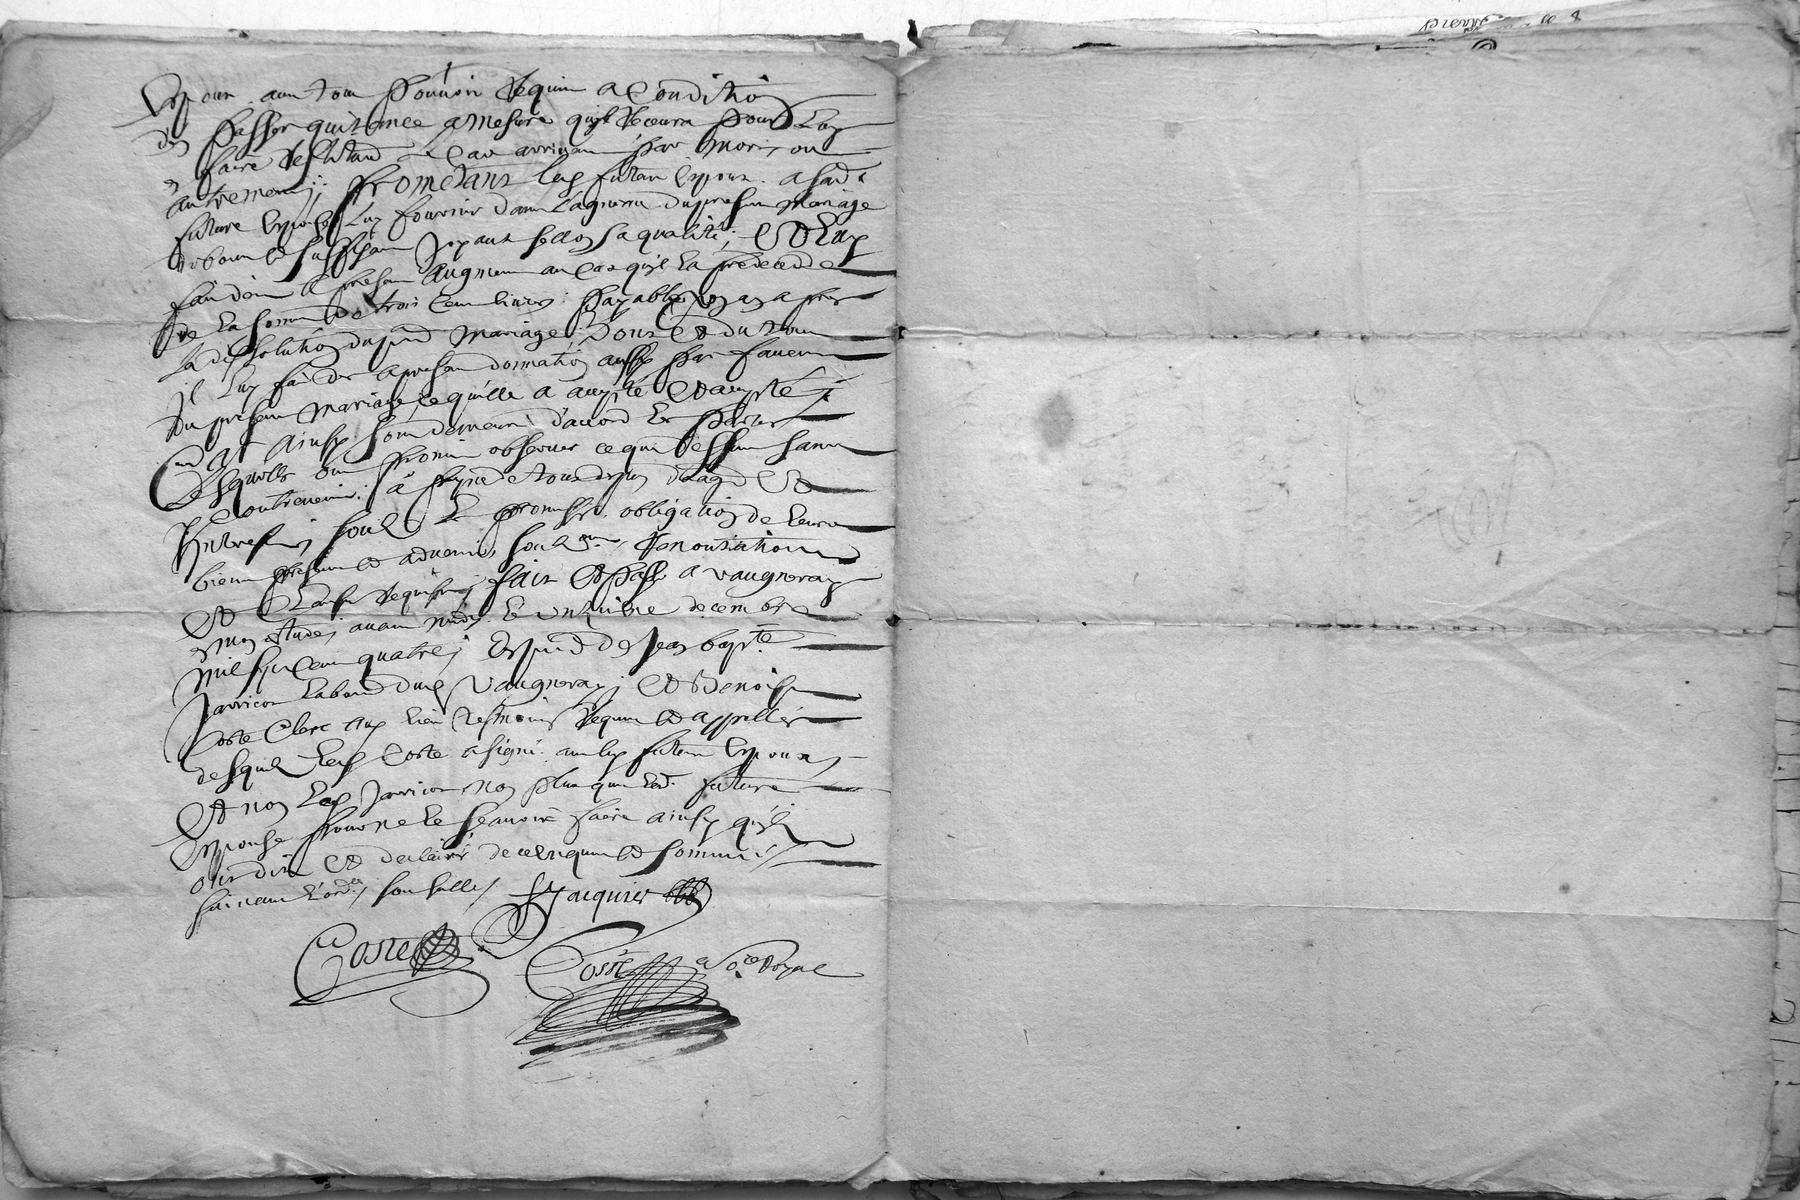 Espoux avec tout pouvoir requis a condition
den passer quittance a mesure quil recevra pour luy
en faire restituõn le cas arrivant par mort ou
autrement; promettant led futur espoux a sad
future espouse luy fournir dans lagneau du present mariage
de bons et suffisant joyaux sellon sa qualité; Et luy
fait don a present augment au cas quil la predecedde
de la somme de trois cent livres payable un an apres
la dissolution du pnt mariage; dont et du tout
il luy fait des a present donnation aussy par faveur
du present mariage, ce quelle a accepté et accepte;
Car ainsy sont demeurés d'accord les parties
Lesquelles ont promis observer ce que dessus sans
Contrevenir; a peyne de tous despens domages et
Interests, soubs les promesses obligation de leurs
biens presents et advenir, soubmons, renontiations
et clauses requises; fait et passé a vaugneray
en mon estude, avant midy le onziesme decembre
mil sept cent quatre; En pnce de Jean bapte
Jarricon laboureur dud Vaugneray; et Benoist
Coste clerc aud lieu tesmoins requis et appellés
desquels led Coste a signé avec led futur Espoux,
et non led Jarricon non plus que lad. future
Espouse pour ne le sçavoir faire ainsy quils
ont dit et declairé de ce enquis et sommés
suivant l'ordce, soussellé,
Jacquier
Coste
Coste nore Royal